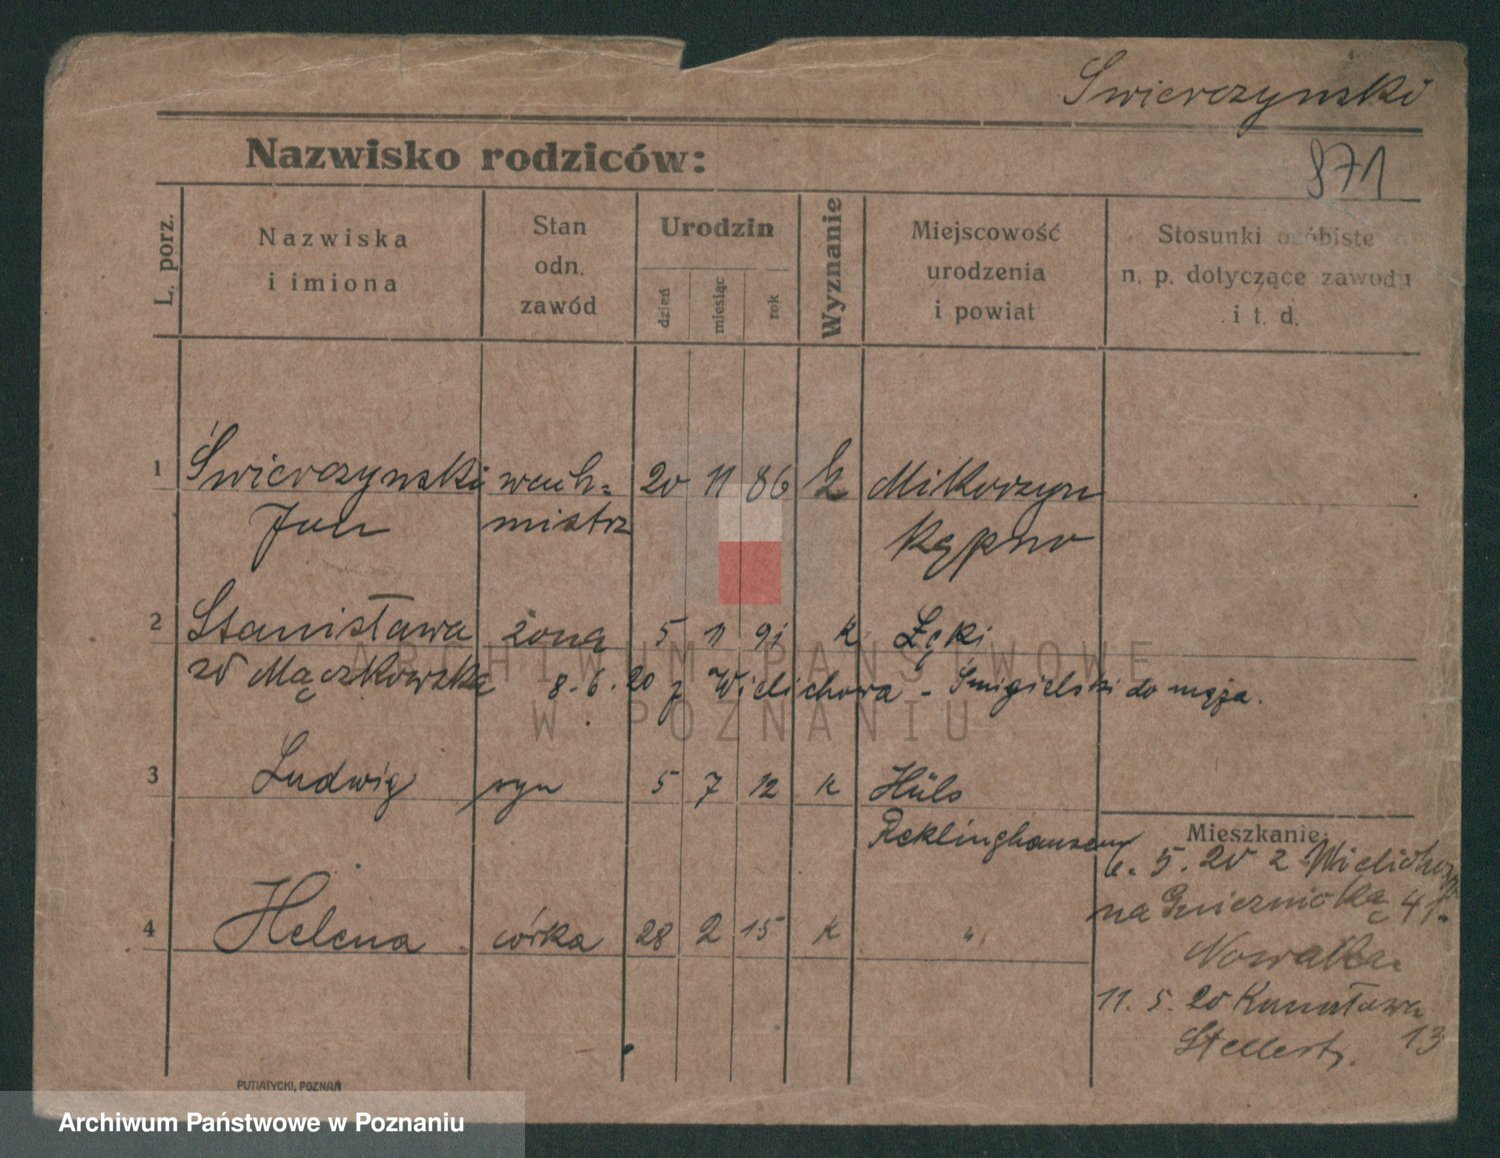 Swierczynski
Nazwisko rodziców:
871
L. porz.
Nazwiska
i imiona
Stan
odn.
zawód
Urodzin
dzień
miesiąc
rok
Wyznanie
Miejscowość
urodzenia
i powiat
Stosunki osobiste
n. p. dotyczące zawodu
i t. d.
1 Świerczynski wach= 20 11 86 Mikorzyn
Jan mistrz Kępno
2 Stanisława żona 5 11 91 k Łęki
Mączkowska 8.6.20 z Wielichowa - Śmigielski do męża.
3 Ludwig syn 5 7 12 k Hüls
Recklinghausen
4 Helena córka 28 2 15 k "
Mieszkanie:
5. 20 z Wielichowa
na 41.
Nowak
11. 5. 20 13
PUTIATYCKI, POZNAŃ
ARCHIWUM PAŃSTWOWE
W POZNANIU
Archiwum Państwowe w Poznaniu